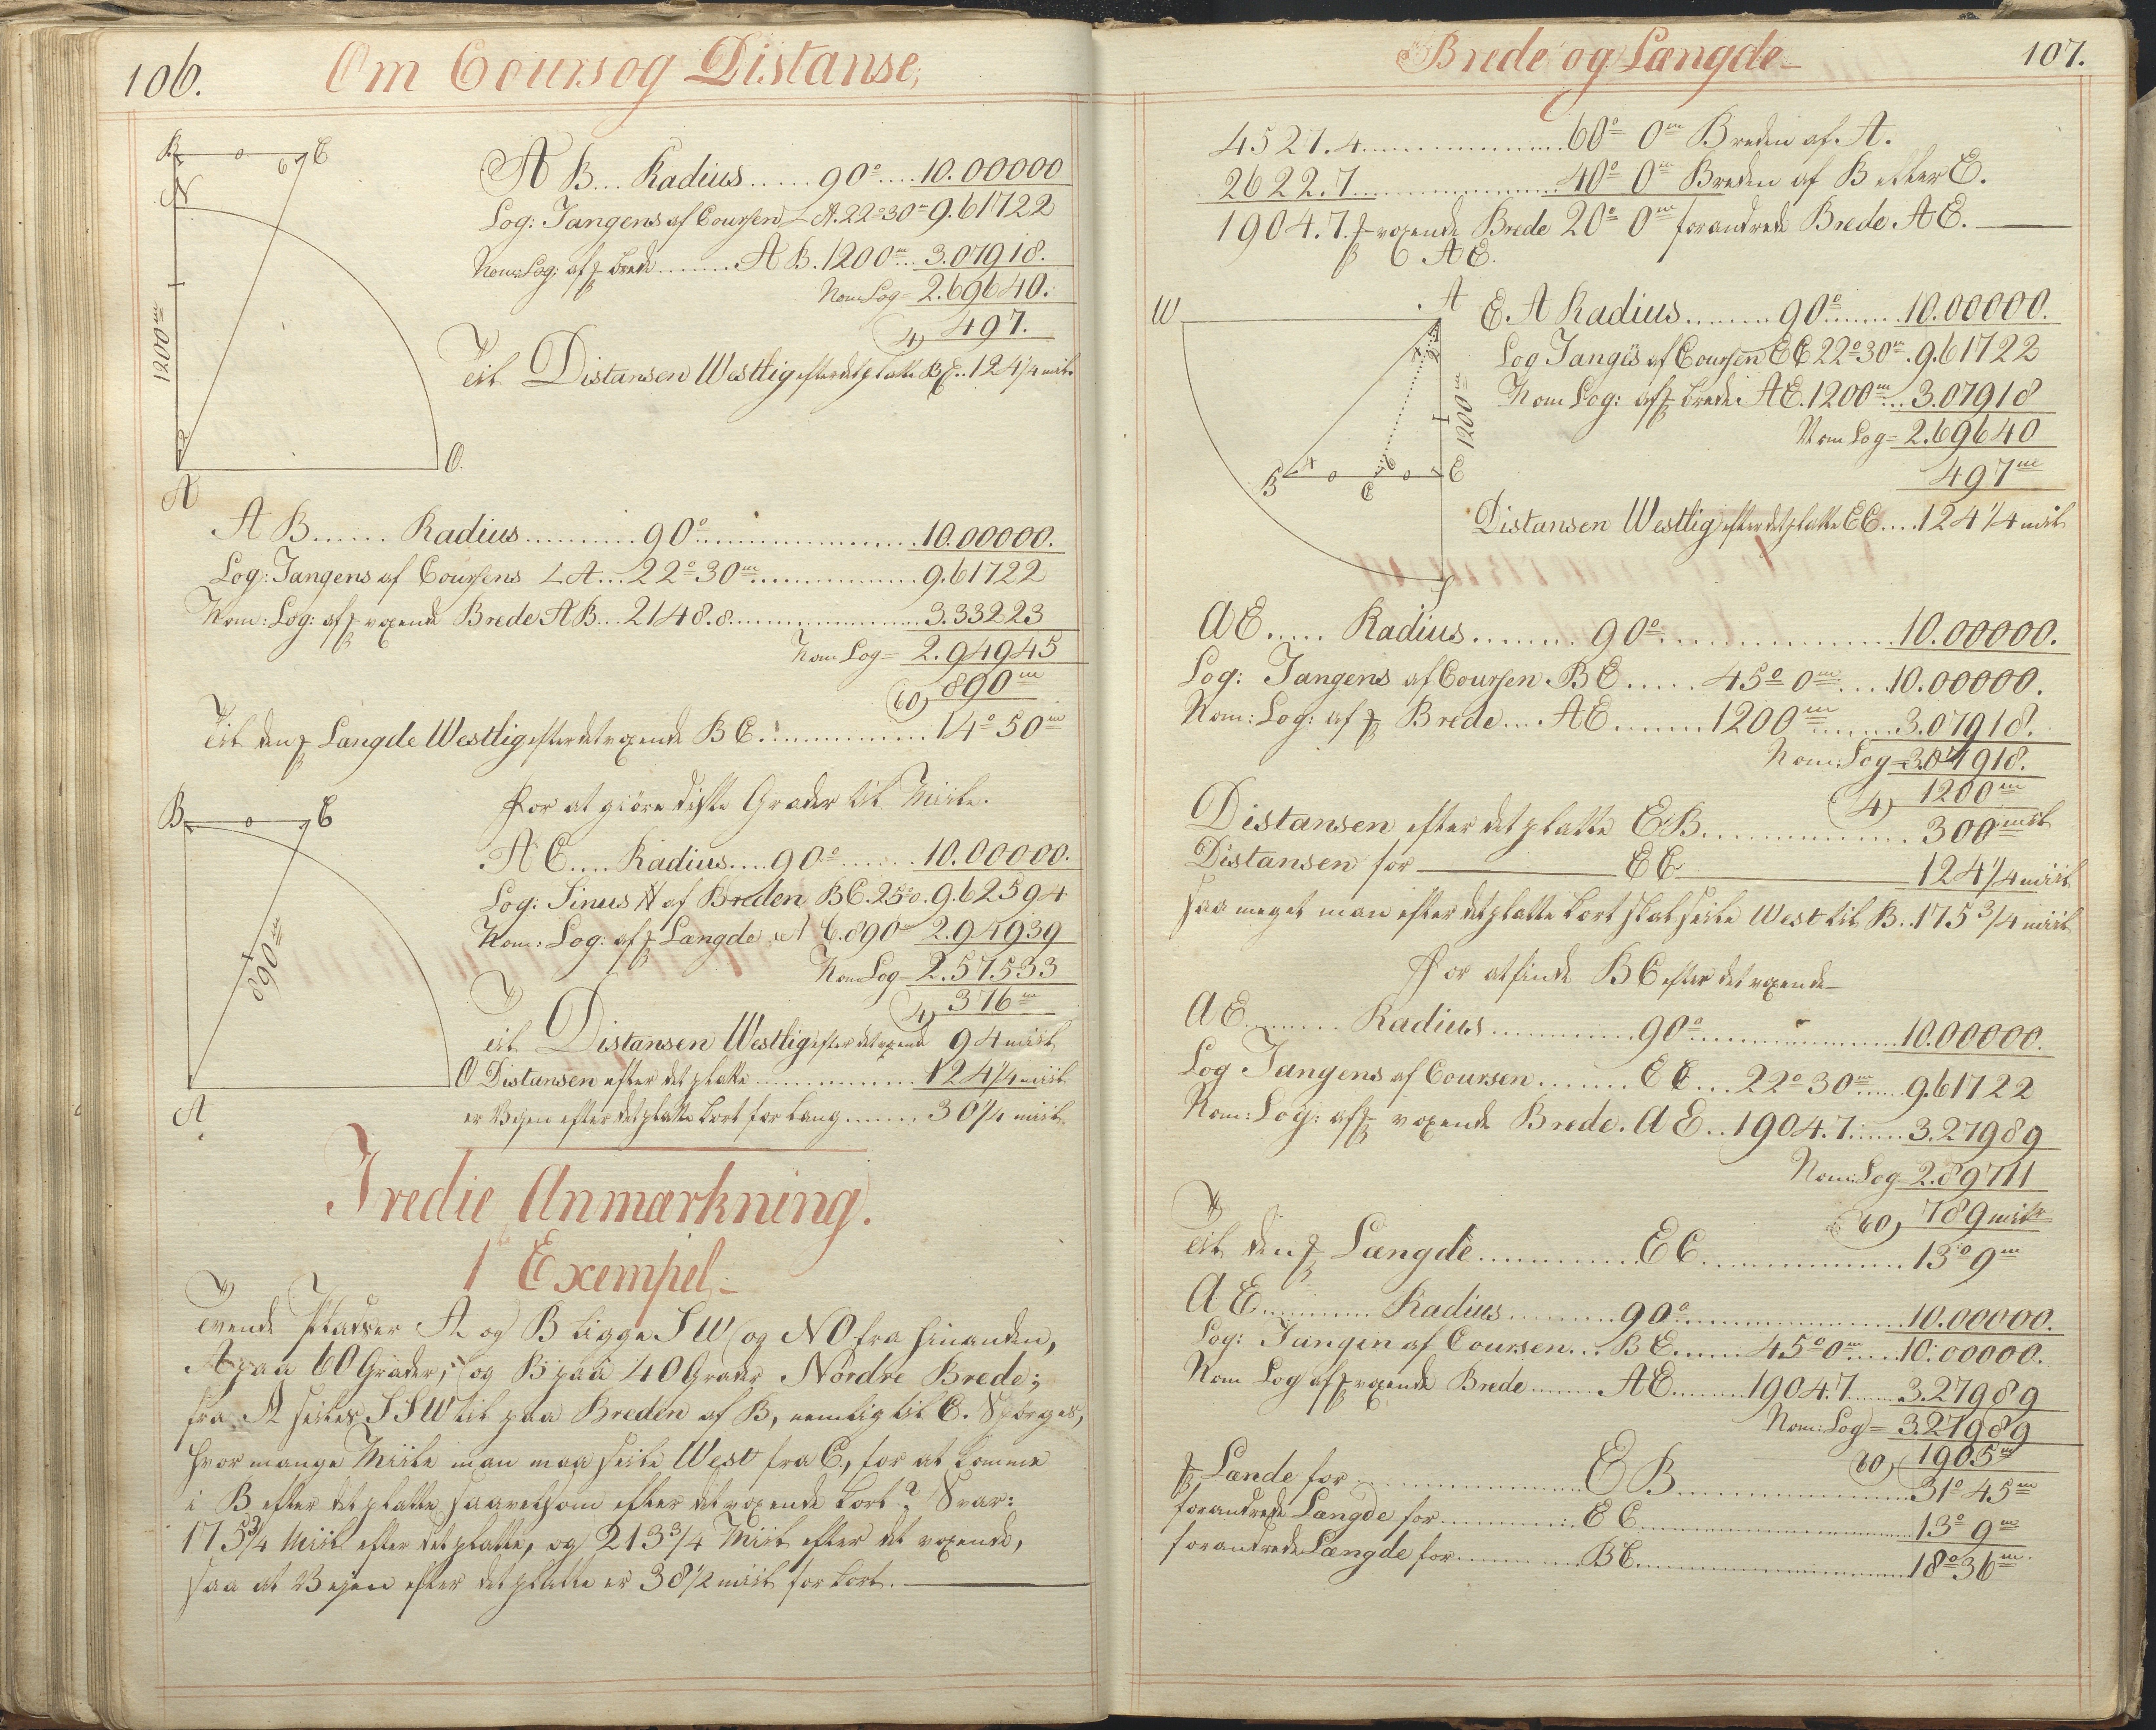 106.
Om Cours og Distanse,
B o 6 C
N
1200m
2
A
O.
A B... Radius......90°....10.00000
Log: Tangens af Coursen ∠ A. 22°30m 9.61722
Nom: Log: af f brede........A B. 1200m...3.07918.
Nom Log= 2.69640.
4) 497.
Til Distansen Westlig efter det platte BC..124 1/4 miil.
A B...... Radius..........90°....................10.00000.
Log: Tangens af Coursens ∠ A...22°30m...............9.61722
Nom: Log: af f voxende Brede A B...2148.8..................3.33223
Nom Log= 2.94945
60) 890m
Til den f Længde Westlig efter det voxende B C...............14°50m
B o C
890m
O
A
For at giöre disse Grader til Miile.
A C.... Radius....90°.......10.00000.
Log: Sinus af Breden BC. 25°0. 9.62594
Nom: Log: af f Længde A C. 890m 2.94939
Nom Log= 2.57533
4) 376m
Til Distansen Westlig efter det voxend 94 miil
Distansen efter det platte...............124 1/4 miil
er Veyen efter det platte Kort for lang.......30 1/4 miil.
Tredie Anmærkning.
1 Exempel
Tvende Pladser A og B ligge SW og NO fra hinanden,
A paa 60 Grader, og B paa 40 Grader Nordre Brede;
fra A seiles SSW til paa Breden af B, nemlig til C. Spörges,
hvor mange Miile man maa seile West fra C, for at komme
i B efter det platte, saavelsom efter det voxende Kort? Svar:
175 3/4 Miil efter det platte, og 213 3/4 Miil efter det voxende,
saa at Veyen efter det platte er 38 1/2 miil for kort.
Brede og Længde
107.
4521.4....................60° 0m Breden af A.
2622.7....................40° 0m Breden af B eller E.
1904.7. f voxende Brede 20° 0m forandrede Brede A E.
A E.
W
A
4 2
1200m
B 4 o 6 o E
C
S
E. A Radius.........90°........10.00000.
Log Tangës af Coursen EC 22°30m. 9.61722
Nom Log: af f brede. A E. 1200m...3.07918
Nom Log= 2.69640
497m
Distansen Westlig efter det platte EC....124 1/4 miil
A E..... Radius.........90°....................10.00000.
Log: Tangens af Coursen B E......45° 0m....10.00000.
Nom: Log: af f Brede....A E.........1200m........3.07918.
Nom: Log= 3.07918.
4) 1200m
Distansen efter det platte E B...............300 miil
Distansen for E C 124 1/4 miil
saa meget man efter det platte Kort skal seile West til B..175 3/4 miil
For at finde B C efter det voxende
A E......... Radius.............90°....................10.00000.
Log Tangens af Coursen........E C....22°30m......9.61722
Nom: Log: af f voxende Brede. A E..1904.7......3.27989
Nom: Log= 2.89711
60) 789 miile
Til den f Længde...............E C....................13° 9m
A E............ Radius..........90°....................10.00000.
Log: Tangen af Coursen...B E......45° 0m.....10.00000.
Nom Log af f voxende Brede........A E.........1904.7......3.27989
Nom: Log= 3.27989
60) 1905m
f Lænde for....................E B....................31° 45m
forandrede Længde for..............E C....................13° 9m
forandrede Længde for..............B C....................18° 36m.